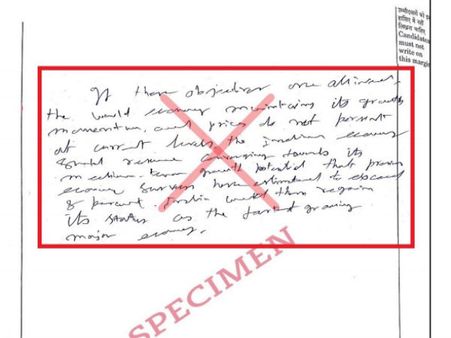 हाशिए में नहीं
लिखना चाहिए
Candidate
must not
write on
this margi
If these objectives are attained,
the world economy maintaining its growth
momentum, and prices do not persist
at current levels the Indian economy
resume converging towards its
medium-term growth potential that
economic surveys have estimated to exceed
8 percent. India would then regain
its status as the fastest growing
major economy.
SPECIMEN